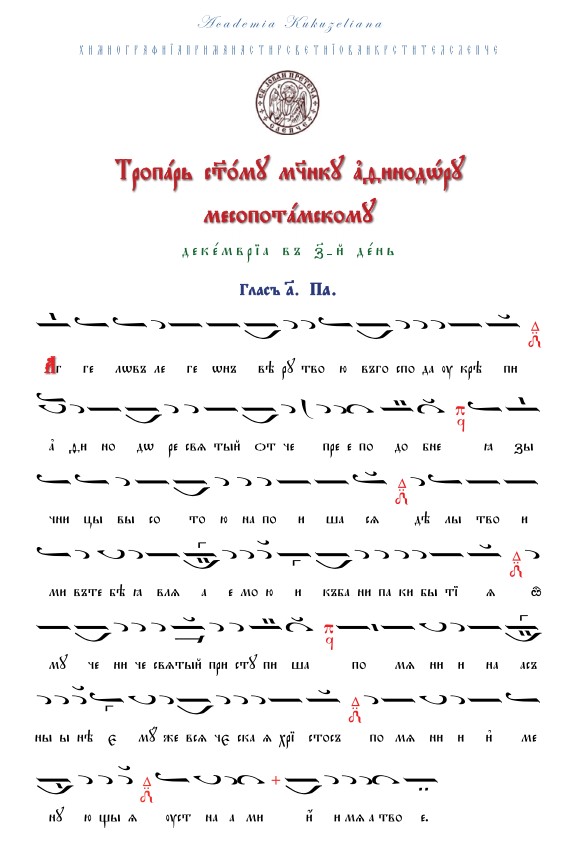 Academia Kukuzeliana
ХИМНОГРАФИЇАПРИМАНАСТИРСВЕТИЇОВАНКРСТИТЕЛСЛЕПЧЕ
СВ. ЈОВАН ПРЕТЕЧА
СЛЕПЧЕ
Тропа́рь ст҃о́мꙋ мч҃икꙋ а҆динодѡ́рꙋ
месопота́мскомꙋ
деке́мврїа въ з҃-й де́нь
Гласъ а҃. Па.
Аг ге лѡвъ ле ге ѡнъ вѣ рꙋ тво ю въ го спо да оу крѣ пи
а҆ ди но дѡ ре свѧ тый от че пре е по до бне ꙗ зы
чни цы вы со то ю на по и ша сѧ дѣ лы тво и
ми въ те бѣ ꙗ влѧ а е мо ю и къ ба ни па ки бы тї ѧ ѿ
мꙋ че ни че свѧтый при стꙋ пи ша по мѧ ни и на асъ
ны ы нѣ є мꙋ же всѧ че ска ѧ хрї стосъ по мѧ ни и҆ ме
нꙋ ю щы ѧ оуст на а ми и҆ и мѧ а тво е.